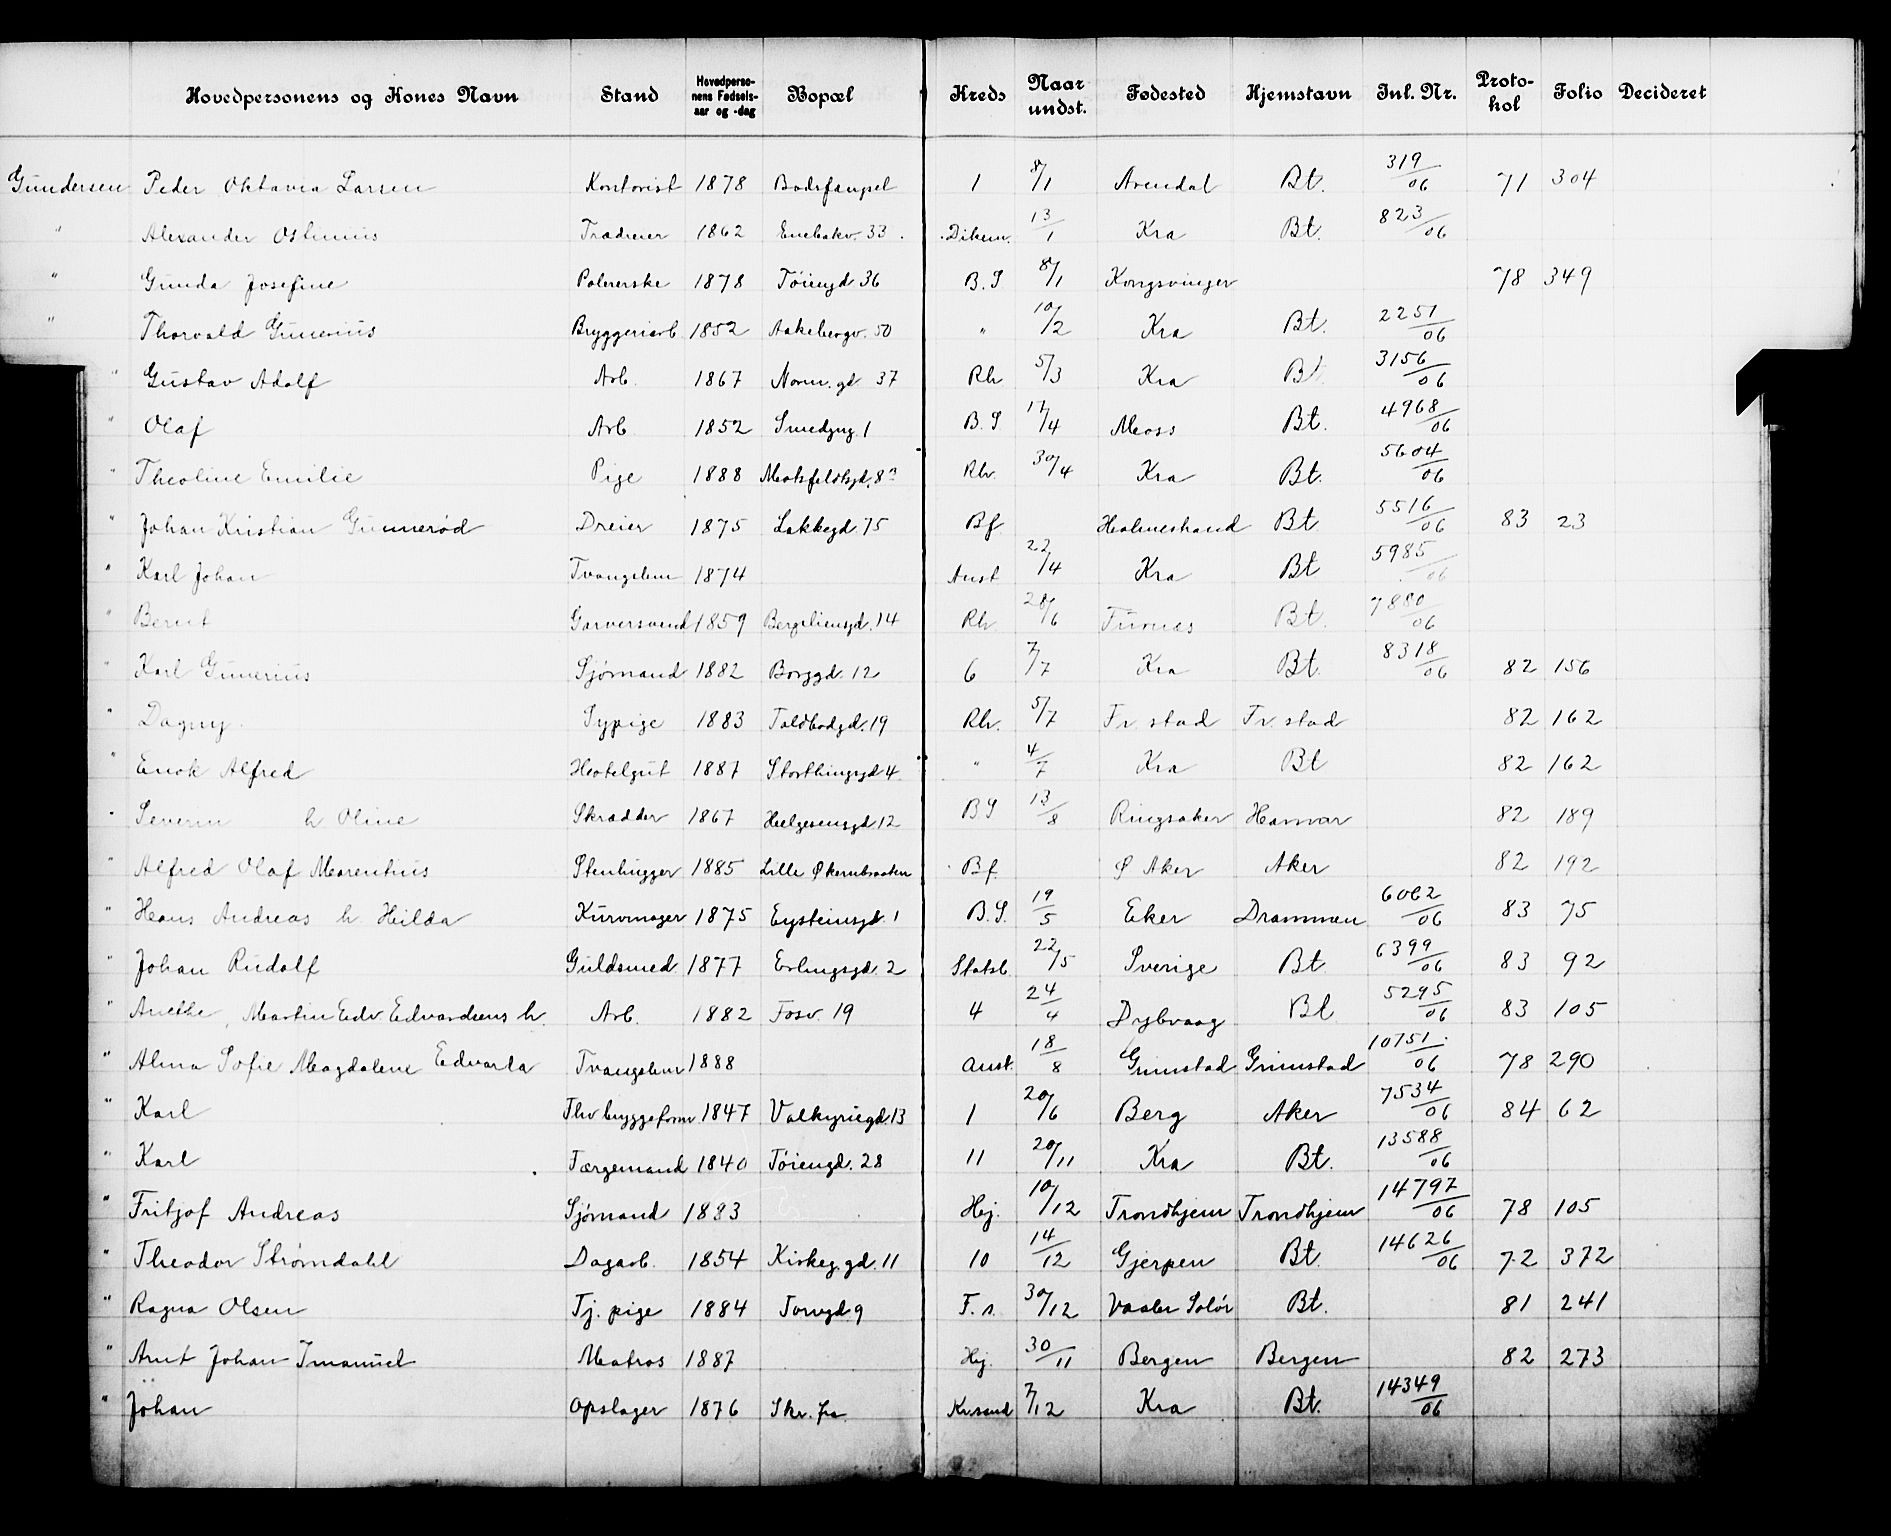 Hovedpersonens og Kones Navn Stand Hovedpersonens Fødselsaar og -dag Bopæl Kreds Naar undst. Fødested Hjemstavn Inl. Nr. Protokol Folio Decideret
Gundersen Peder Oktavia Larsen Kontorist 1878 Bodsfængsl 1 8/1 Arendal Bt. 319/06 71 304
" Alexander Trædreier 1862 Enebakv. 33 Dikem. 13/1 Kra Bt. 823/06
" Gunda Josefine Polererske 1878 Töiengd 36 B.S 8/1 Kongsvinger 78 349
" Thorvald Gunerius Bryggeriarb 1852 Aakebergv. 50 " 10/2 Kra Bt. 2251/06
" Gustav Adolf Arb. 1867 Norm. gd 37 Rh 5/3 Kra Bt. 3156/06
" Olaf Arb. 1852 Smedgng. 1 B.S 17/4 Moss Bt. 4968/06
" Theoline Emilie Pige 1888 Motsfeldtsgd. 8a Rh. 30/4 Kra Bt. 5604/06
" Johan Kristian Gunnerød Dreier 1875 Lakkegd. 75 Bf. Holmestrand Bt. 5516/06 83 23
" Karl Johan Tvangslem 1874 Anst 22/4 Kra Bt 5985/06
" Bernt Garversvend 1859 Bergliensgd. 14 Rh. 28/6 Furnes Bt. 7880/06
" Karl Gunerius Sjømand 1882 Borggd. 12 6 7/7 Kra Bt. 8318/06 82 156
" Dagny. Sypige 1883 Toldbodgd. 19 Rh. 5/7 Fr. stad Fr. stad 82 162
" Enok Alfred Hotelgut 1887 Storthingsgd 4. " 4/7 Kra Bt 82 162
" Severin h. Oline Skrædder 1867 Helgesensgd 12 BS 13/8 Ringsaker Hamar 82 189
" Alfred Olaf Marentius Stenhugger 1885 Lille Økernbraaten Bf. Ø Aker Aker 82 192
" Hans Andreas h. Hilda Kurvmager 1875 Eysteinsgd. 1 B.S. 19/5 Eker Drammen 6062/06 83 75
" Johan Rudolf Guldsmed 1877 Erlingsgd. 2 Statsb. 22/5 Sverige Bt 6399/06 83 92
" Anethe, Martin Edv Edvardsens h. Arb. 1882 Fosv. 19 4 24/4 Dybvaag Bt 5295/06 83 105
" Alma Sofie Magdalene Edvarda Tvangslem 1888 Anst. 18/8 Grimstad Grimstad 10751/06 78 290
" Karl Fhv bryggeform 1847 Valkyriegd. 13 1 20/6 Berg Aker 7534/06 84 62
" Karl Færgemand 1840 Töiengd. 28 11 20/11 Kra Bt. 13588/06
" Fritjof Andreas Sjømand 1883 Hej. 10/12 Trondhjem Trondhjem 14797/06 78 105
" Theodor Strømdahl Dagarb. 1854 Kirkeg. gd. 11 10 14/12 Gjerpen Bt. 14626/06 72 372
" Ragna Olsen Tj. pige 1884 Torvgd. 9 F. s. 30/12 Vaaler Solör Bt. 81 241
" Arnt Johan Imanuel Matros 1887 Hej. 30/11 Bergen Bergen 82 273
" Johan Opslager 1876 Skr. fra Kr.sand 7/12 Kra Bt. 14349/06